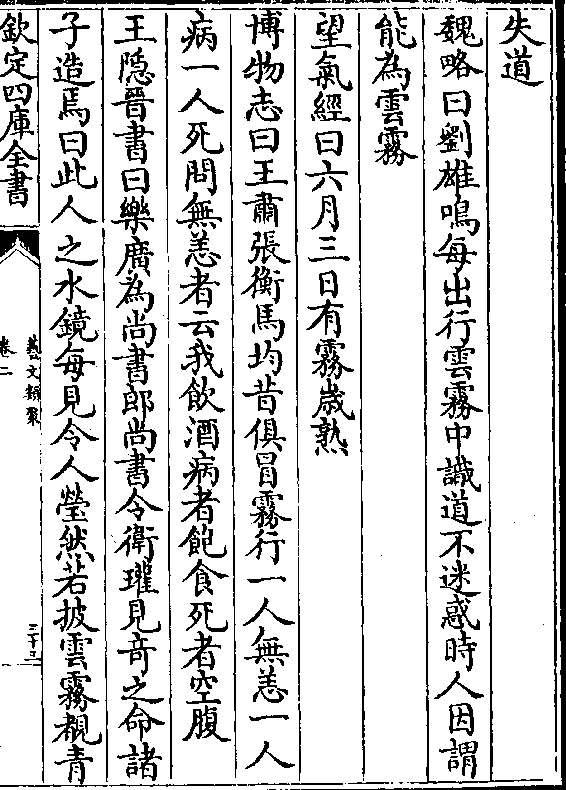 失道
魏略曰劉雄鳴每出行雲霧中識道不迷惑時人因謂
能為雲霧
望氣經曰六月三日有霧歲熟
博物志曰王肅張衡馬均昔俱冒霧行一人無恙一人
病一人死問無恙者云我飲酒病者飽食死者空腹
王隱晉書曰樂廣為尚書郎尚書令衛瓘見竒之命諸
子造焉曰此人之水鏡每見令人瑩然若披雲霧覩青
欽定四庫全書
藝文類聚
卷二
三十三